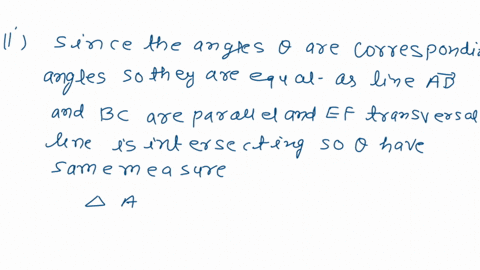 (ii) Since the angles θ are correspondi
angles so they are equal- as line AB
and BC are parallel and EF transversal
line is intersecting so θ have
same measure
△ A